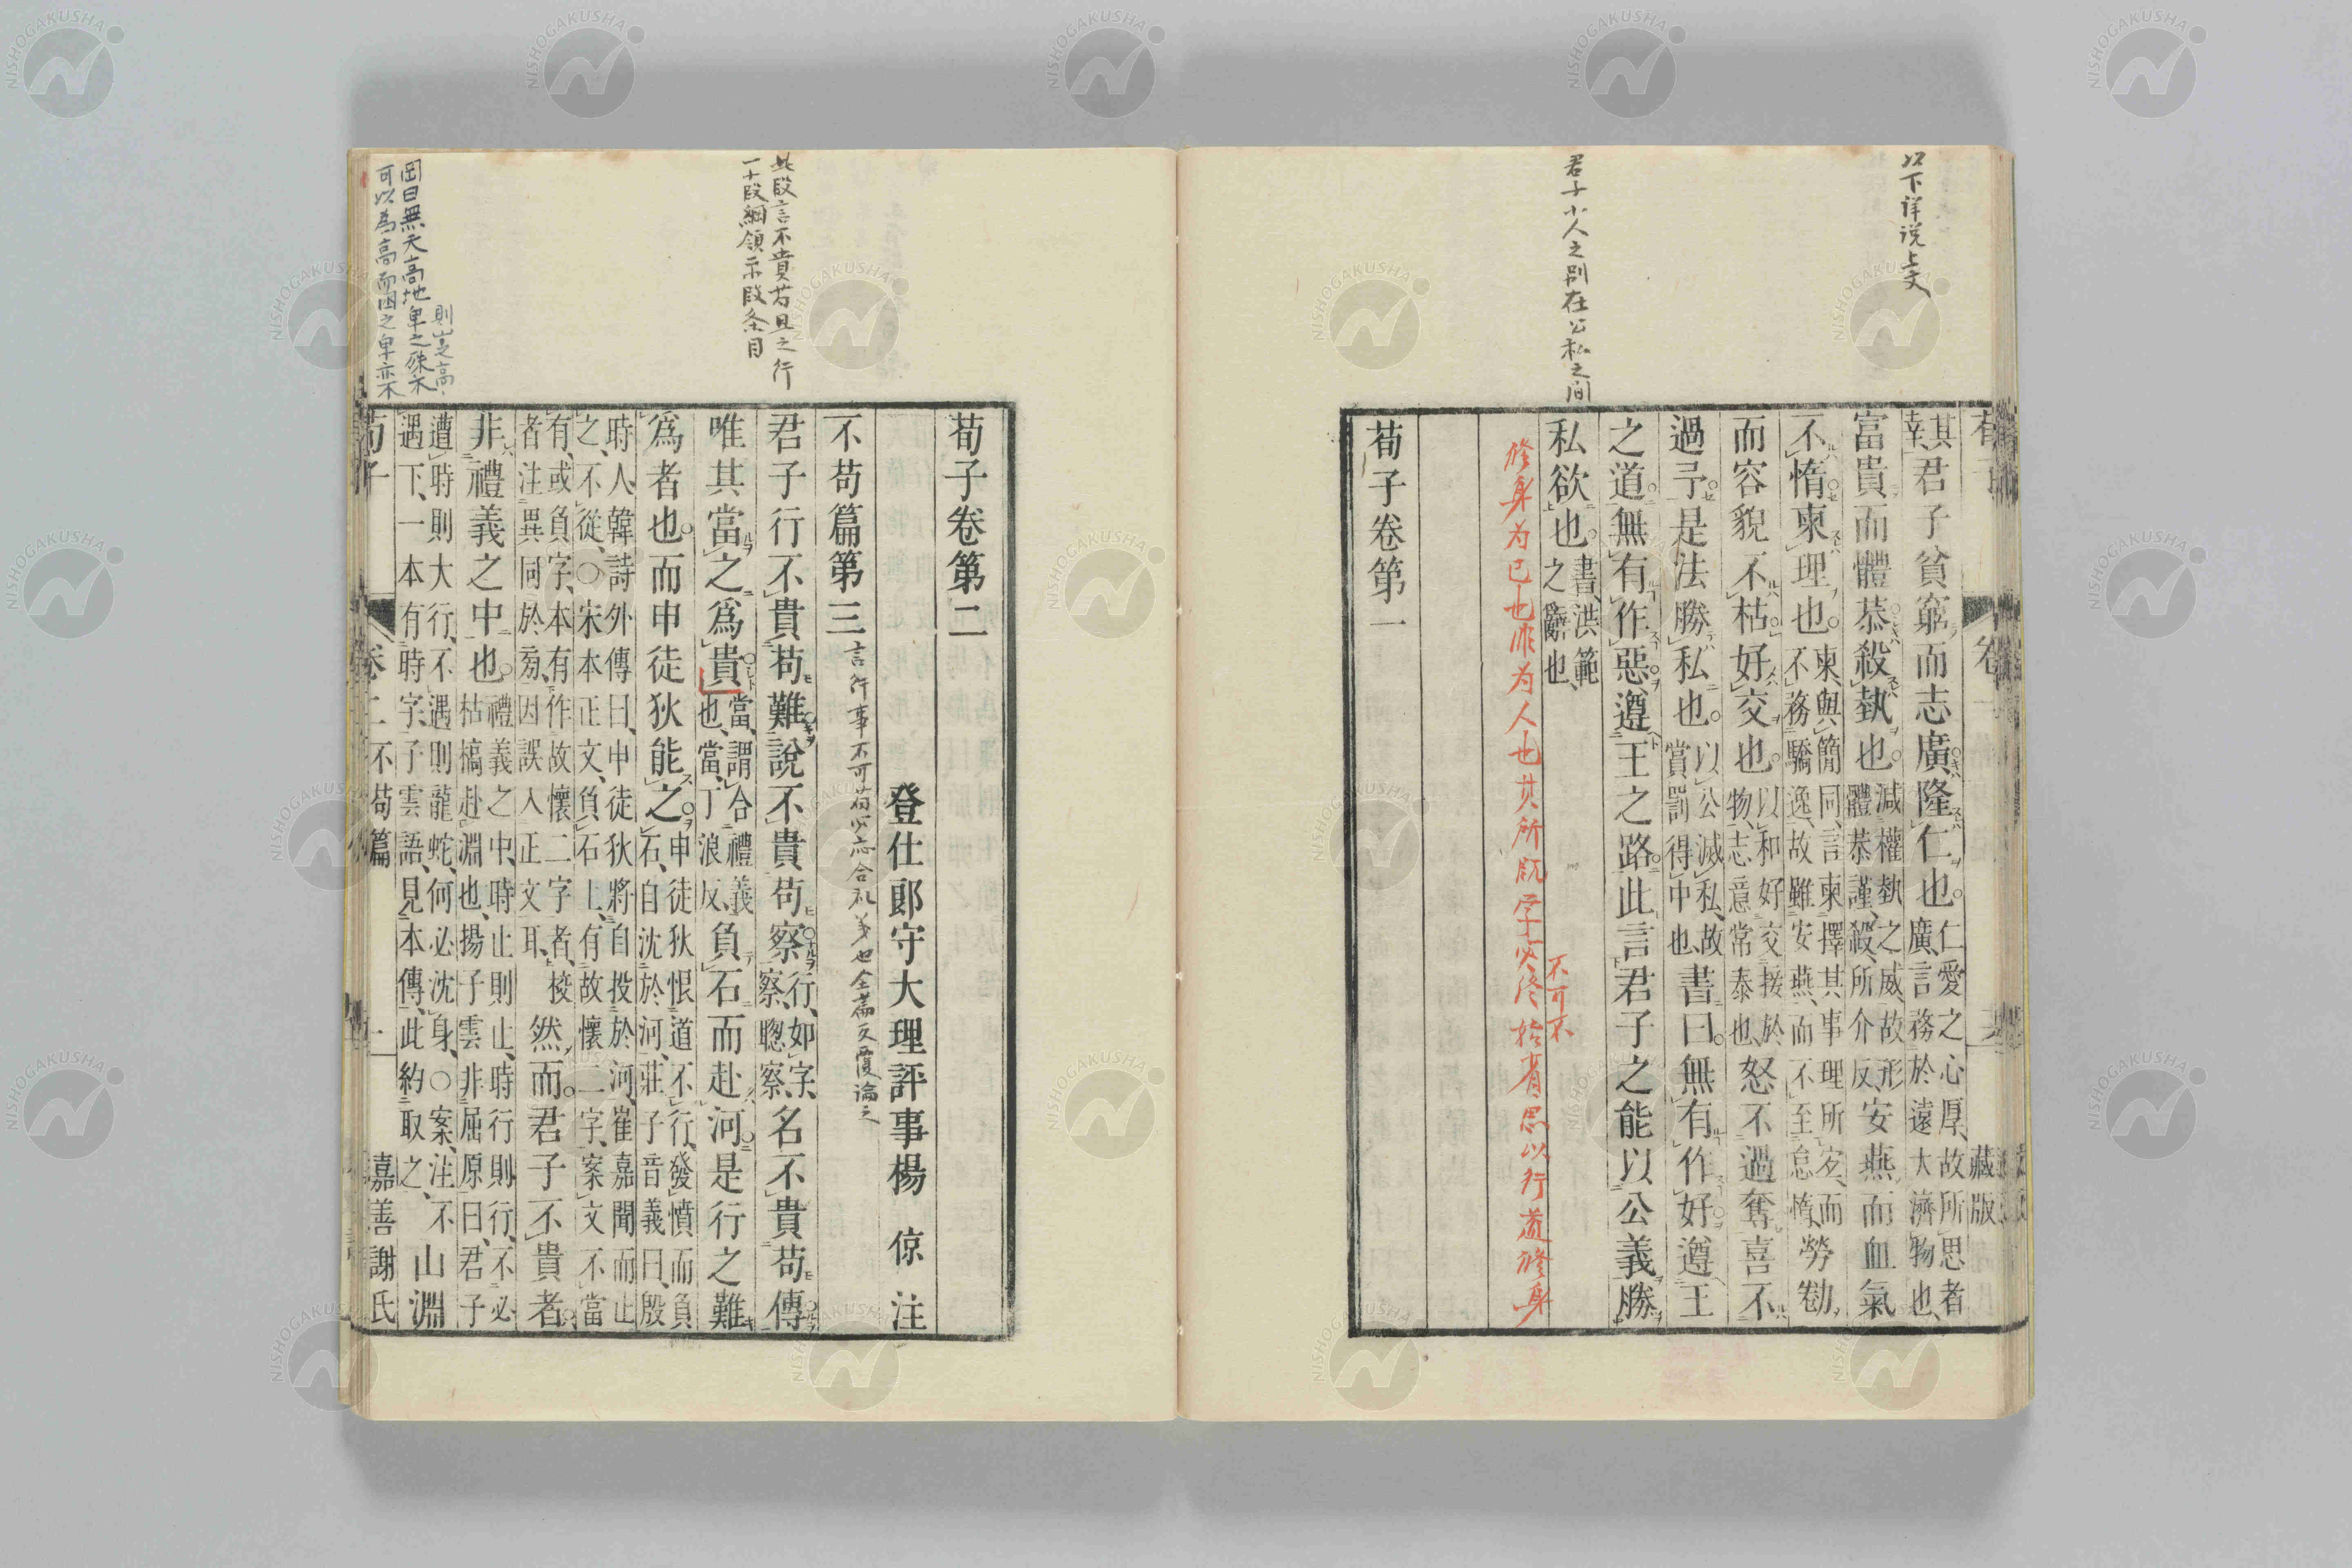 以下详说上文
君子小人之別在公私之间
其幸、君子貧窮而志廣隆仁也。仁愛之心厚、故所思者廣、言務於遠大濟物也、
富貴而體恭殺埶也。減權埶之威、故形體恭謹、殺、所介反、安燕而血氣
不惰柬理也。柬、與簡同、言柬擇其事理所宜、而不務驕逸、故雖安燕、而不至怠惰、勞勌
而容貌不枯好交也。以和好交接於物、志意常泰也、怒不過奪喜不
過予是法勝私也。以公滅私、故賞罰得中也、書曰。無有作好遵王
之道無有作惡遵王之路此言君子之能以公義勝
私欲也。書、洪範之辭也、
不可不
修身为己也非为人也其所既学必於省思以行道修身
荀子卷第一
藏版
荀子卷第二
登仕郎守大理評事楊 倞 注
不苟篇第三
言行事不可苟必応合礼義也全篇反覆論之
此段言不貴苟且之行
一十段綱領示段条目
君子行不貴苟難說不貴苟察行、如字、察、聰察、名不貴苟傳
唯其當之爲貴當、謂合禮義也、當、丁浪反、負石而赴河是行之難
爲者也。而申徒狄能之申徒狄恨道不行、發憤而負石、自沈於河、莊子音義曰、殷
時人、韓詩外傳曰、申徒狄將自投於河、崔嘉聞而止之、不從、〇宋本正文、負石上、有故懷二字、案文不當
有、或負字、本有作故懷二字者、校者注異同於旁、因誤入正文耳、然而君子不貴者。
非禮義之中也。禮義之中、時止則止、時行則行、不必枯槁赴淵也、揚子雲非屈原曰、君子
遭時則大行、不遇則龍蛇、何必沈身、〇案、注不遇下、一本有時字、子雲語、見本傳、此約取之、山淵
則豈之高
岡曰無天高地卑之殊不
可以為高而因之卑亦不
荀子 卷二 不苟篇 一 嘉善謝氏